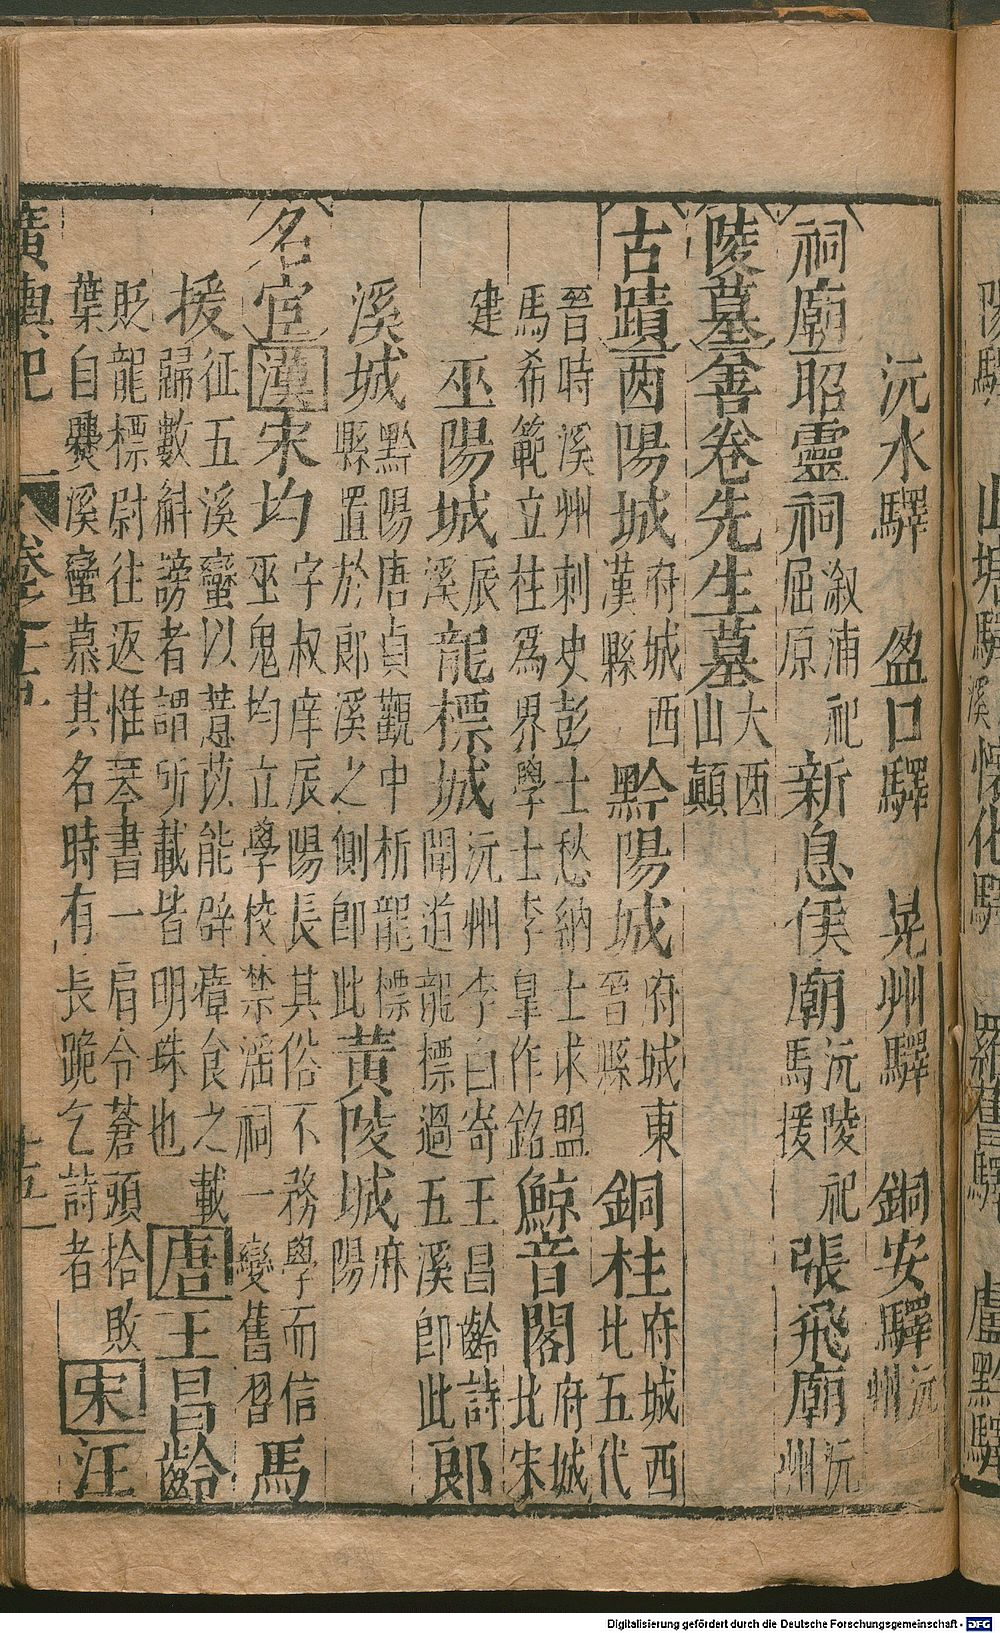 沅水驛 盈口驛 晃州驛 銅安驛沅州
祠廟昭靈祠溆浦祀屈原 新息侯廟沅陵祀馬援 張飛廟沅州
陵墓善卷先生墓大酉山顛
古蹟酉陽城府城西漢縣 黔陽城府城東晉縣 銅柱府城西北五代
晉時溪州刺史彭士愁納土求盟馬希範立柱為界學士李皐作銘 鯨音閣府城北宋
建 巫陽城辰溪 龍標城沅州李白寄王昌齡詩聞道龍標過五溪即此 郎
溪城黔陽唐貞觀中析龍標縣置於郎溪之側即此 黃陵城麻陽
名宦漢宋均字叔庠辰陽長其俗不務學而信巫鬼均立學校禁滛祠一變舊習 馬
援征五溪蠻以薏苡能辟瘴食之載歸數斛謗者謂所載皆明珠也 唐王昌齡
貶龍標尉往返惟琴書一肩令蒼頭拾敗葉自爨溪蠻慕其名時有長跪乞詩者 宋汪
廣輿記 卷之十五 十五
Digitalisierung gefördert durch die Deutsche Forschungsgemeinschaft - DFG